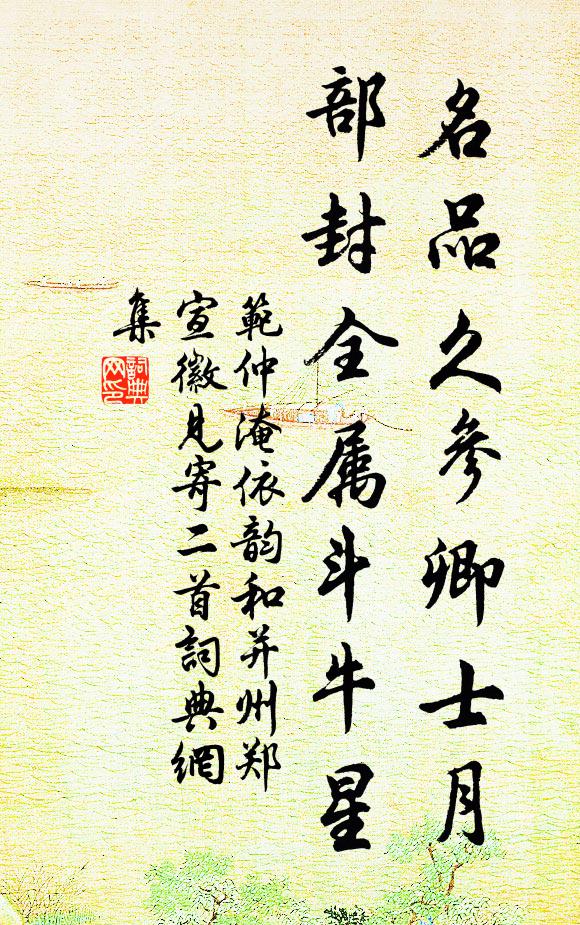 名品久參卿士月
部封全属斗牛星
範仲淹依韵和并州郑
宣徽见寄二首詞典網
集
詞典
网印